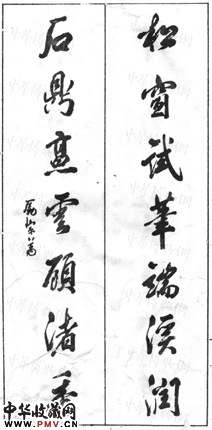 松窗試筆端溪潤
石鼎烹雲顧渚香
中华收藏网
www.PMV.CN